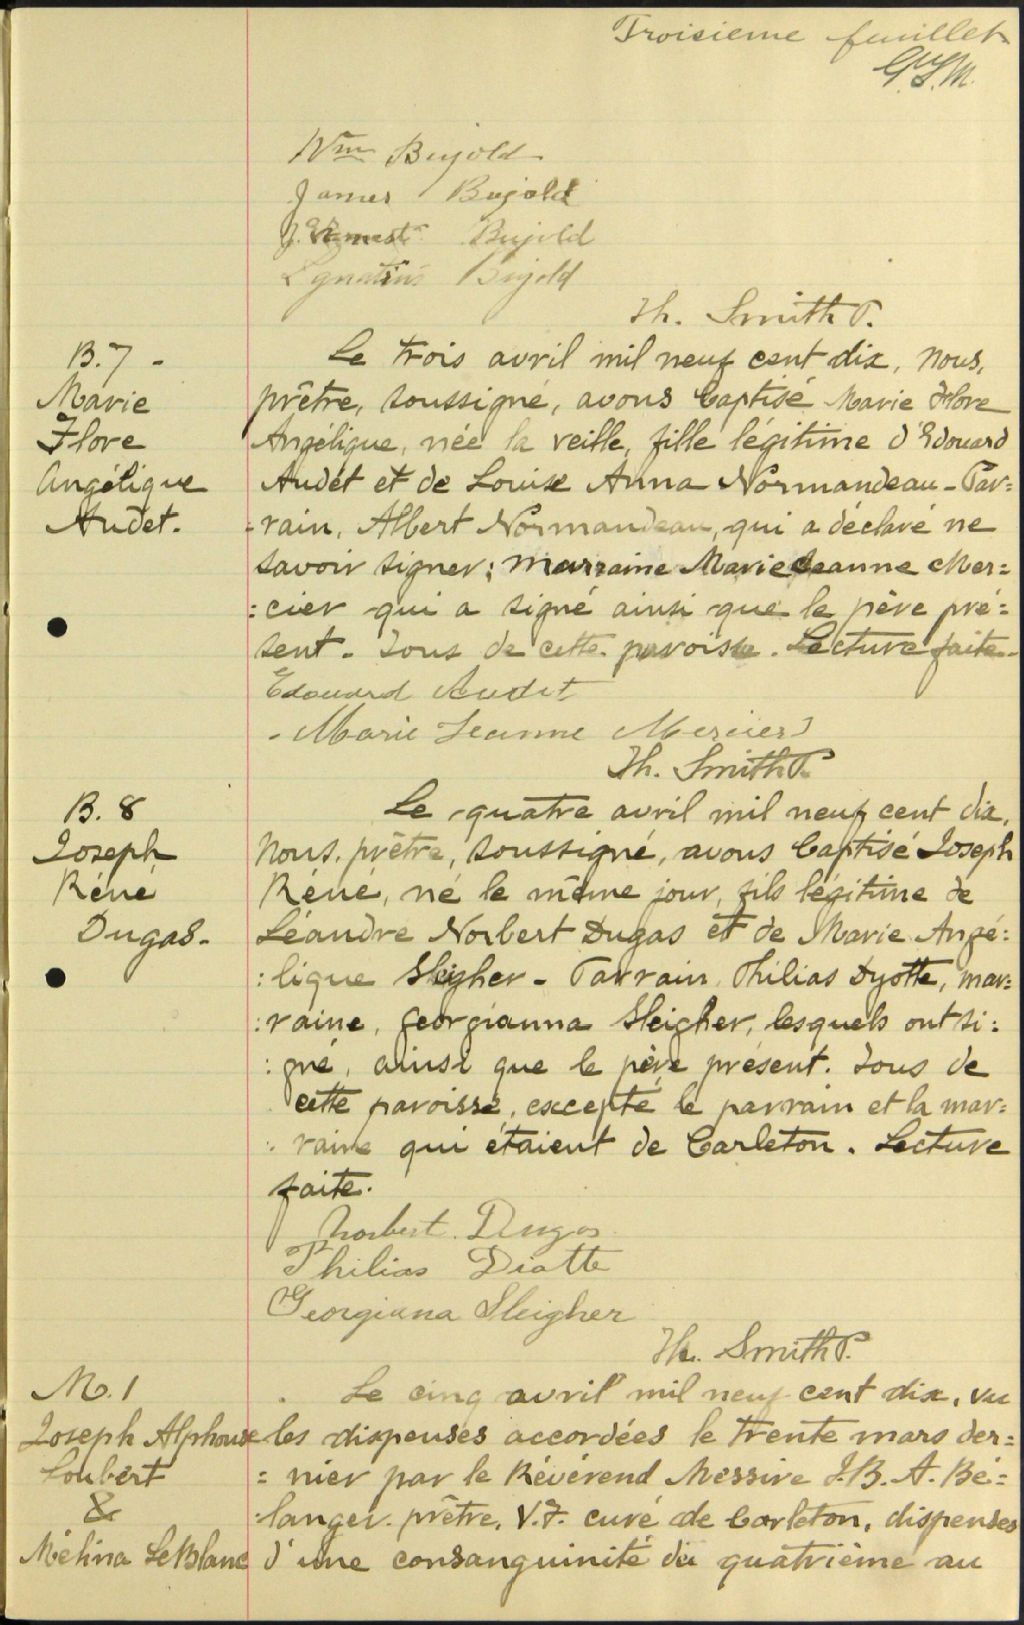 Troisieme feuillet
G.S.M.
Wm Bujold
James Bujold
J. Ernest Bujold
Ignatius Bujold
Th. Smith P.
B. 7 -
Marie
Flore
Angélique
Audet.
Le trois avril mil neuf cent dix, nous,
prêtre, soussigné, avons baptisé Marie Flore
Angélique, née la veille, fille légitime d'Edouard
Audet et de Louise Anna Normandeau - Par=
=rain, Albert Normandeau, qui a déclaré ne
savoir signer; marraine Marie Jeanne Mer=
=cier qui a signé ainsi que le père pré=
sent. Tous de cette paroisse. Lecture faite -
Edouard Audet
- Marie Jeanne Mercier
Th. Smith P.
B. 8
Joseph
Réné
Dugas -
Le quatre avril mil neuf cent dix,
Nous, prêtre, soussigné, avons baptisé Joseph
Réné, né le même jour, fils légitime de
Léandre Norbert Dugas et de Marie Angé=
=lique Sleigher - Parrain, Philias Dyotte, mar=
:raine, Georgianna Sleigher, lesquels ont si=
:gné, ainsi que le père présent. Tous de
cette paroisse, excepté le parrain et la mar=
:raine qui étaient de Carleton. Lecture
faite.
Norbert Dugas
Philias Diotte
Georgiana Sleigher
Th. Smith P.
M. 1
Joseph Alphonse
Loubert
&
Mélina LeBlanc
Le cinq avril mil neuf cent dix, vu
les dispenses accordées le trente mars der=
= nier par le Révérend Messire J.B. A. Bé=
langer prêtre, V.F. curé de Carleton, dispenses
d'une consanguinité du quatrième au